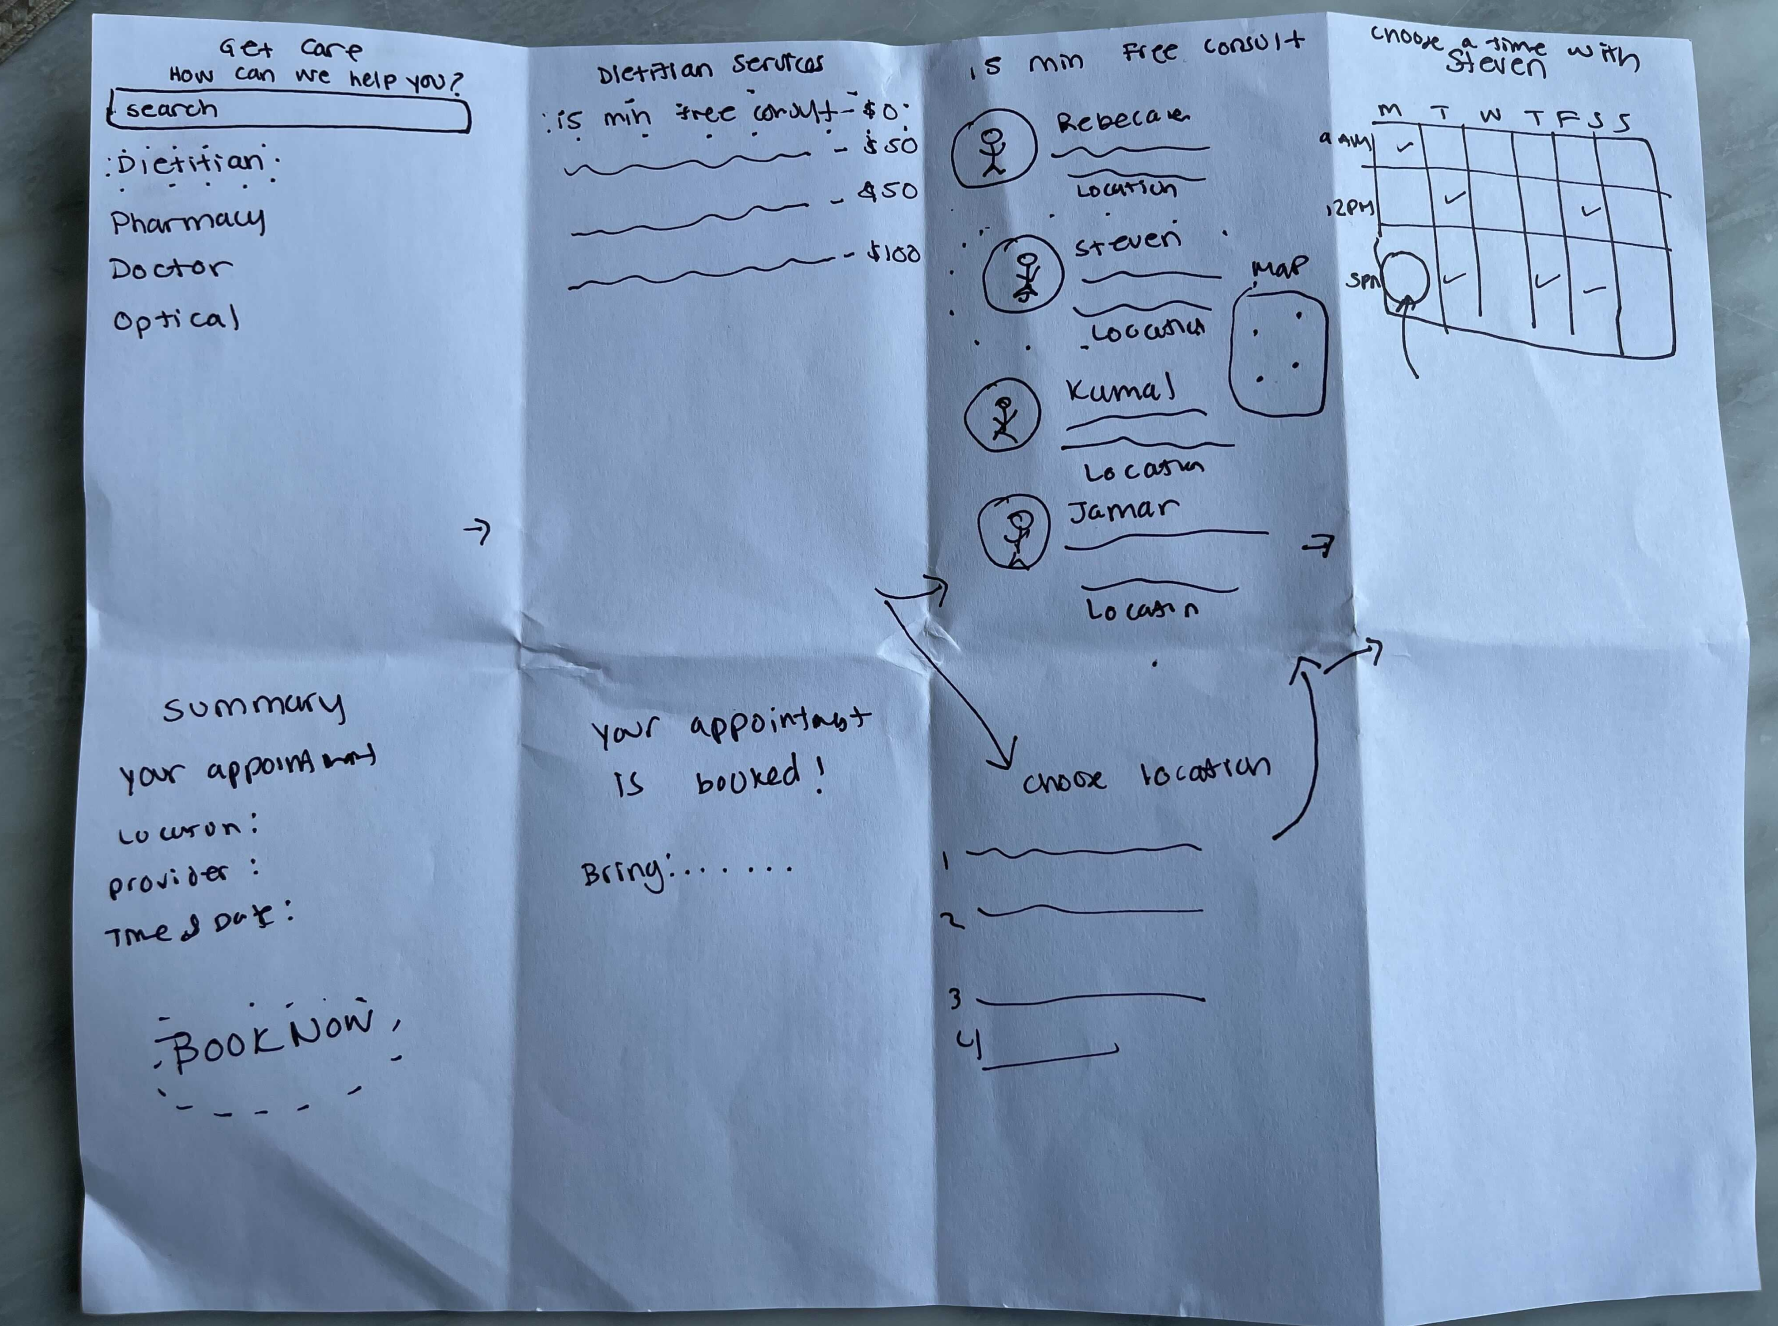 Get Care
How can we help you?
search
Dietitian
Pharmacy
Doctor
Optical
Dietitian Services
15 min free consult - $0
- $50
- $50
- $100
15 min Free consult
Rebecca
Location
Steven
Location
Map
Kumal
Location
Jamar
Location
Choose a time with
Steven
M T W T F S S
9 AM
12PM
5PM
Summary
Your appointment
Location:
Provider:
Time & Date:
Book Now
Your appointment
is booked!
Bring:......
Choose location
1
2
3
4